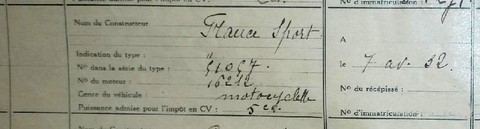 Puissance admise pour l'impôt en CV :
N° d'immatriculation :
Nom du Constructeur
France Sport
A
Indication du type :
le 7 av. 32.
N° dans la série du type :
N° du moteur :
N° du récépissé :
Genre du véhicule : motocyclette
Puissance admise pour l'impôt en CV : 5 cv
N° d'immatriculation